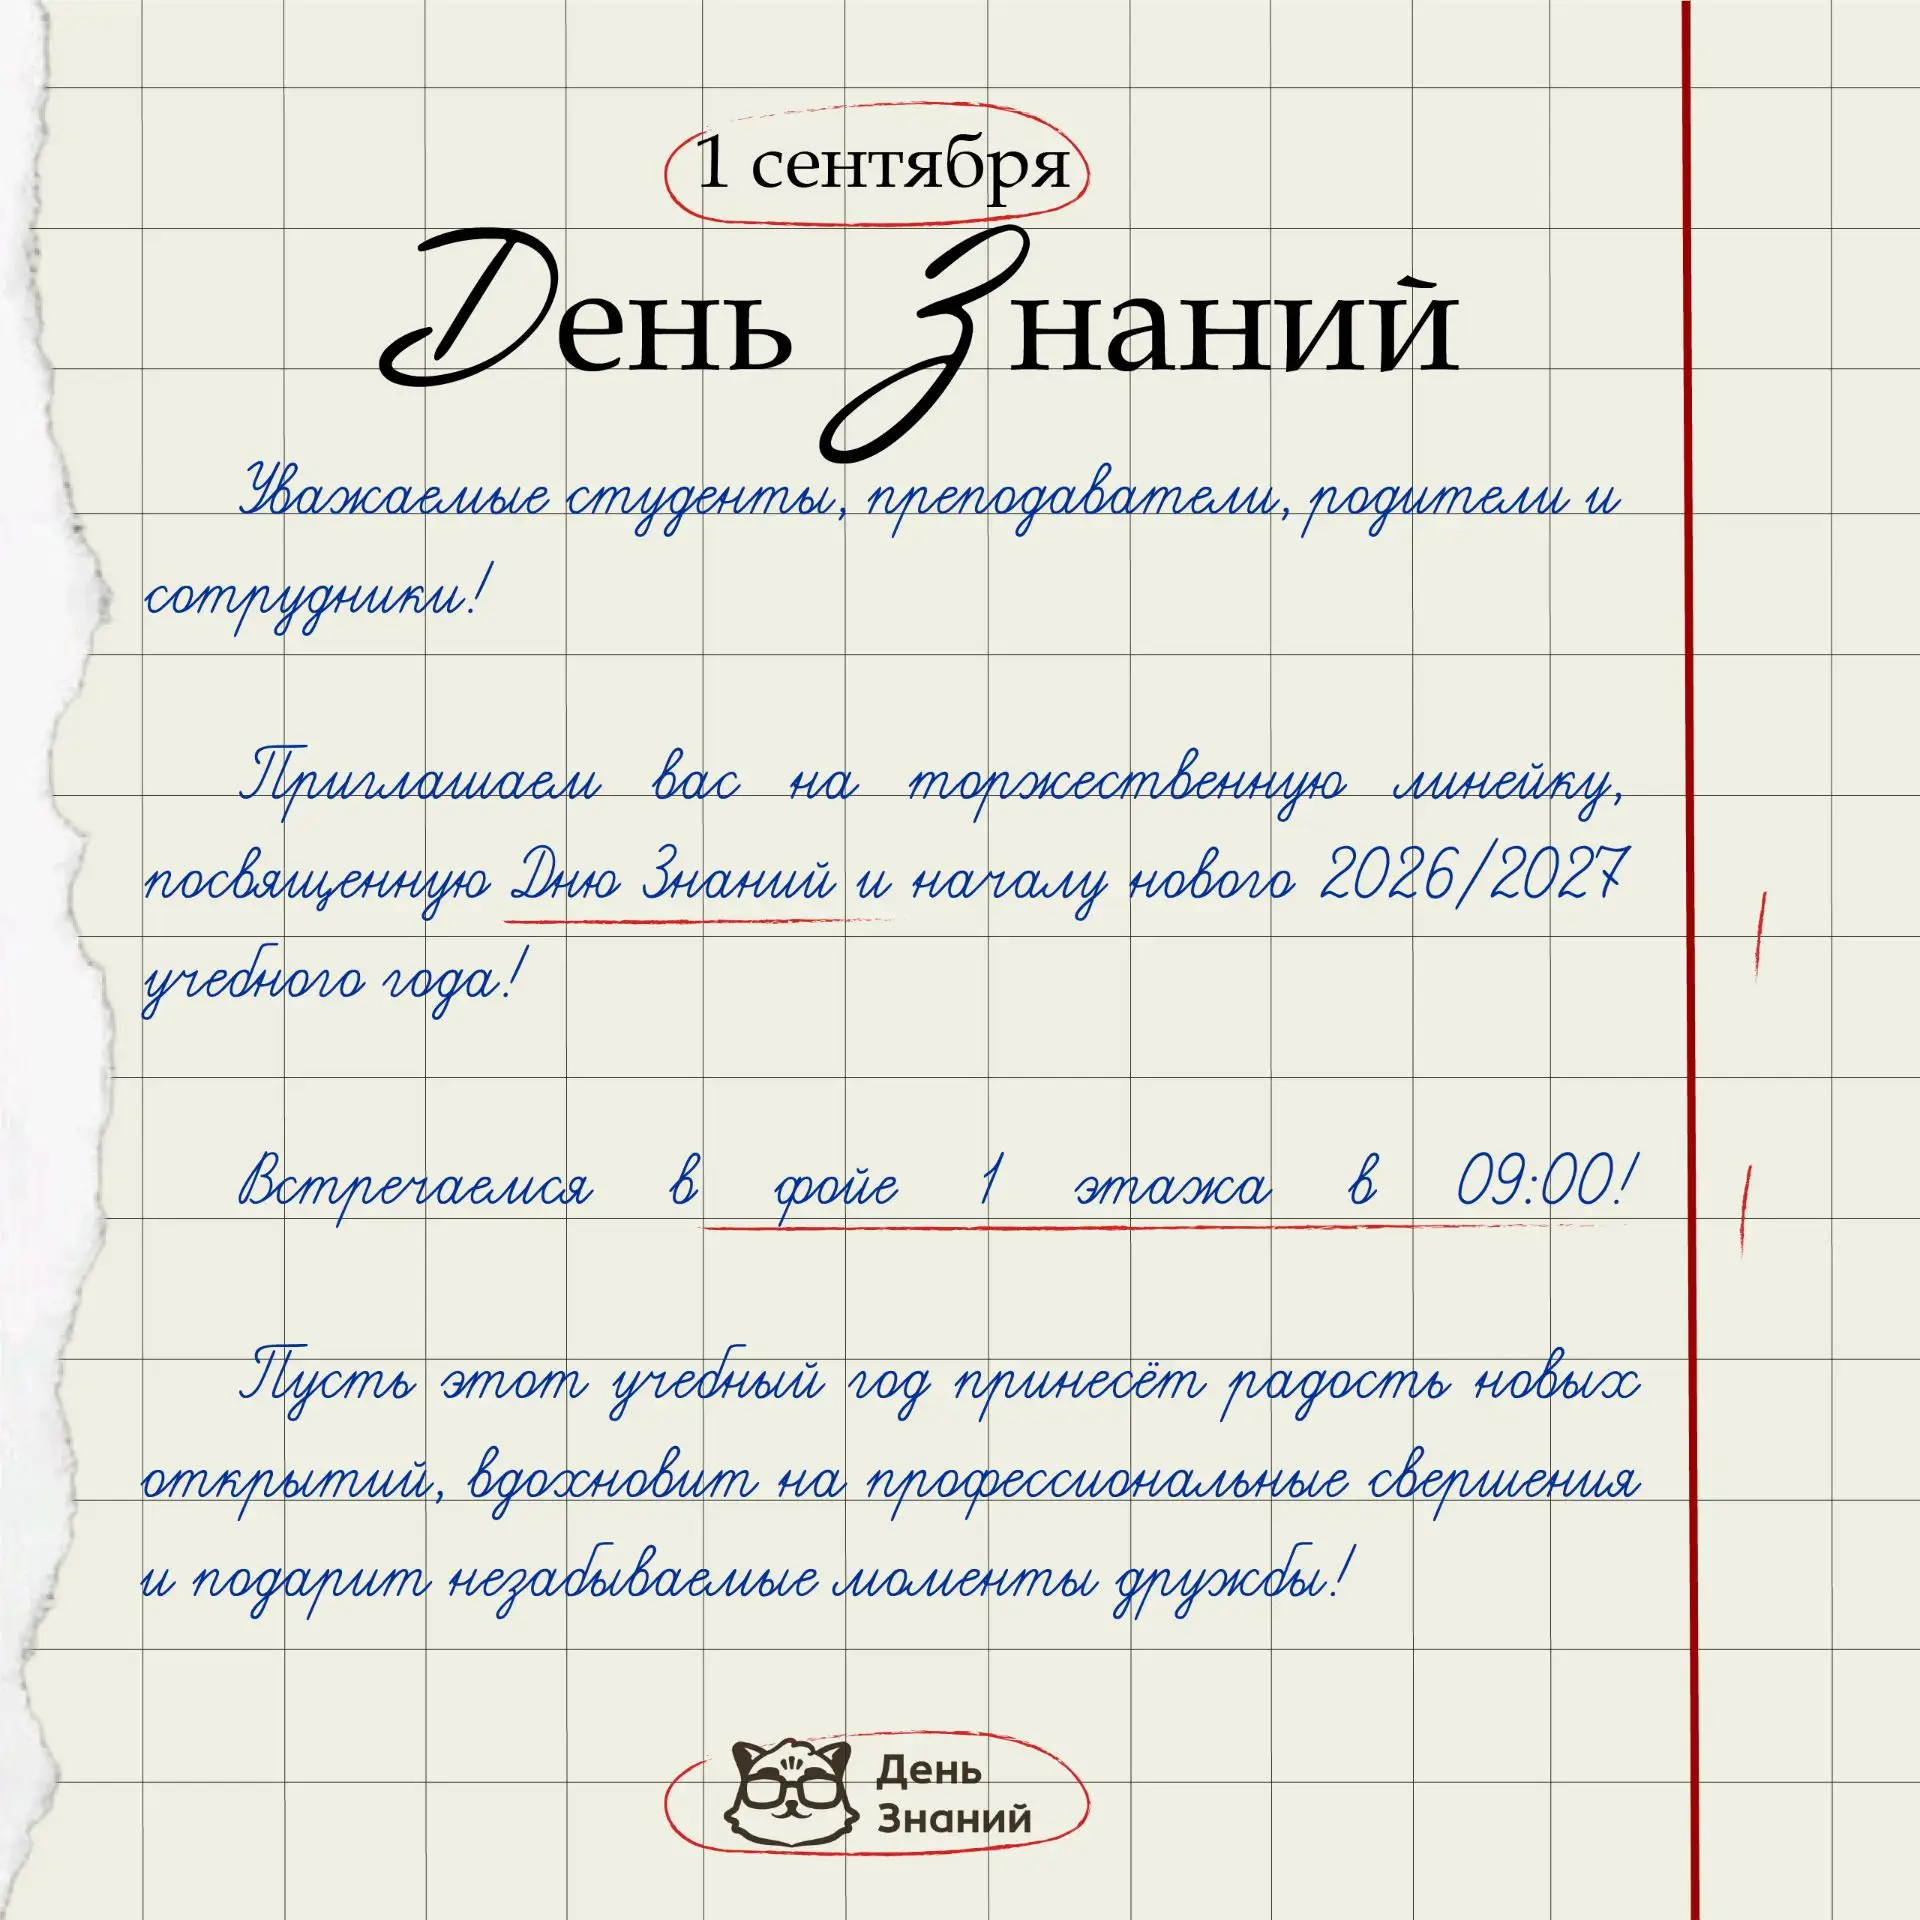 1 сентября
День Знаний
Уважаемые студенты, преподаватели, родители и
сотрудники!
Приглашаем вас на торжественную линейку,
посвященную Дню Знаний и началу нового 2026/2027
учебного года!
Встречаемся в фойе 1 этажа в 09:00!
Пусть этот учебный год принесёт радость новых
открытий, вдохновит на профессиональные свершения
и подарит незабываемые моменты дружбы!
День
Знаний